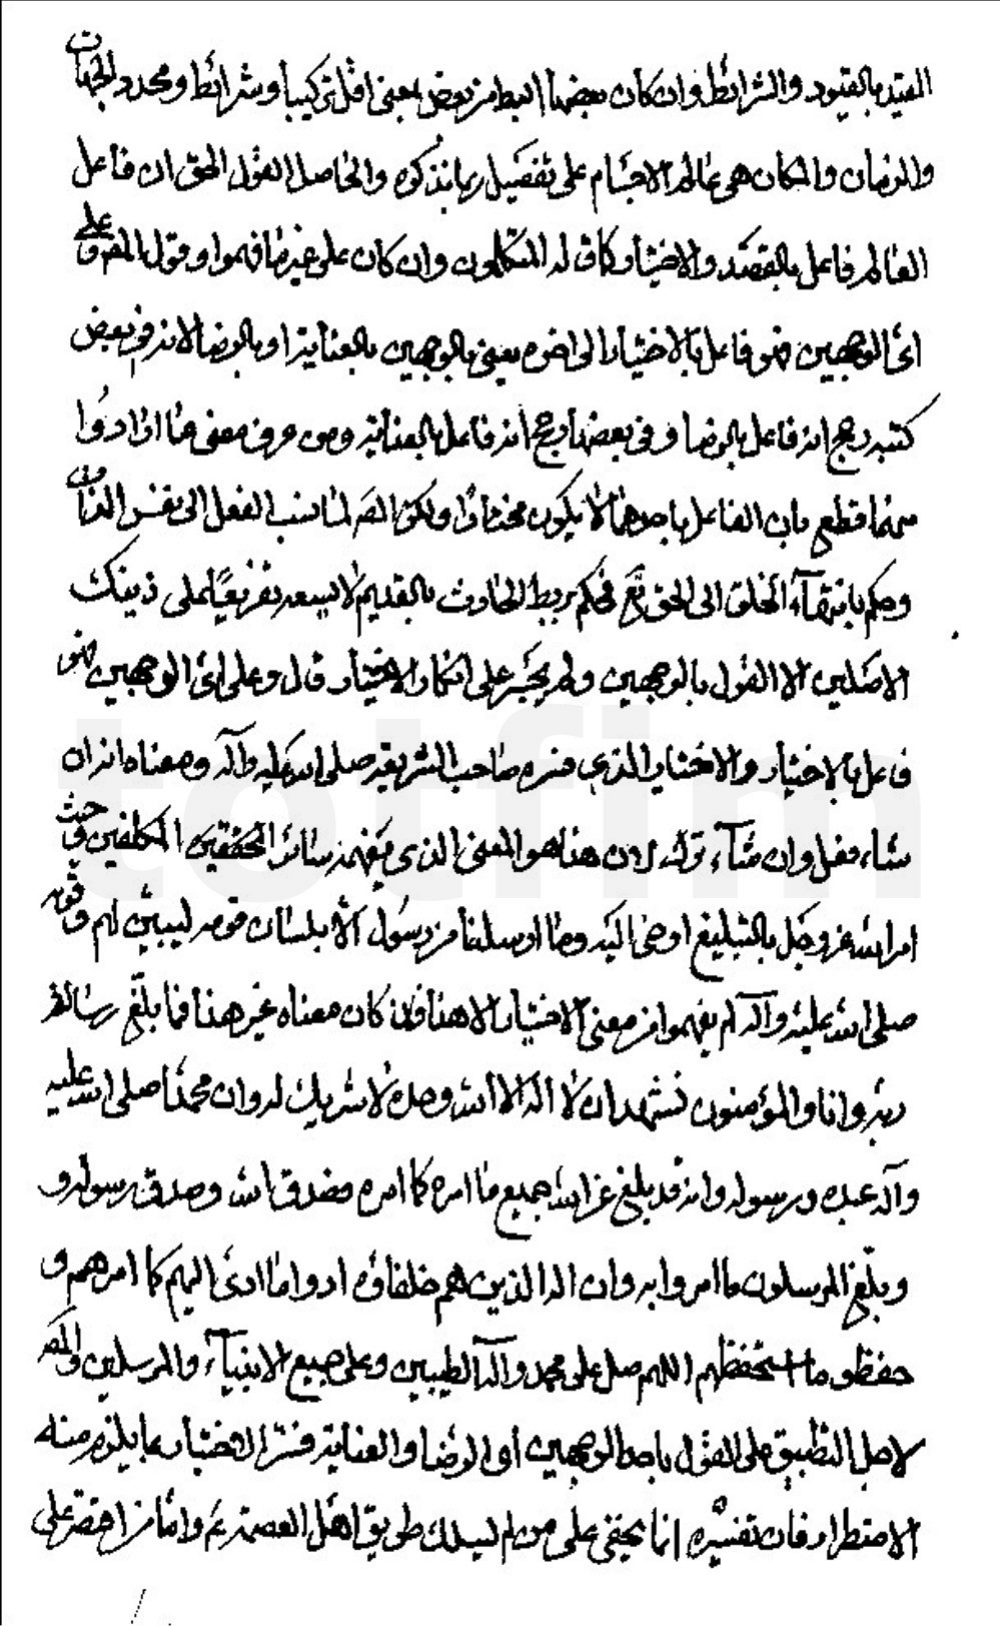 المقيد بالقيود والشرائط وان كان بعضها ابسط من بعض بمعنى اقل تركيبا وشرائط ومحدد الجهات
والزمان والمكان هى عالم الاجسام على تفصيل ربما نذكره والحاصل القول الحق ان فاعل
العالم فاعل بالقصد والاختيار كما قاله المتكلمون وان كان على غير ما فهموا وقول المص وعلى
اى الوجهين فهو فاعل بالاختيار الى اخره يعنى بالوجهين بالعناية او بالرضا لانه فى بعض
كتبه رجح انه فاعل بالرضا وفى بعضها رجح انه فاعل بالعناية ومن عرف معنى ما ارادوا
منهما قطع بان الفاعل باحدهما لا يكون مختارا ولكن المص لما نسب الفعل الى نفس الذات
وحكم بانتهاء الخلق الى الحق تع فحكم بربط الحادث بالقديم لا يسعه تفريعا على ذينك
الاصلين الا القول بالوجهين ولم يجسر على انكار الاختيار قال وعلى اى الوجهين فهو
فاعل بالاختيار والاختيار الذى فسره صاحب الشريعة صلى الله عليه وآله ومعناه انه ان
شاء فعل وان شآء ترك لان هذا هو المعنى الذى يفهمه سائر المحققين المكلفين وحيث
امر الله عز وجل بالتبليغ اوحى اليه وما ارسلنا من رسول الا بلسان قومه ليبين لهم وقومه
صلى الله عليه وآله لم يفهموا من معنى الاختيار الا هذا فان كان معناه غير هذا فما بلغ رسالة
ربه وانا والمؤمنون نشهد ان لا اله الا الله وحده لا شريك له وان محمدا صلى الله عليه
وآله عبده ورسوله وانه قد بلغ عن الله جميع ما امره كما امره فصدق الله وصدق رسوله و
وبلغ المرسلون ما امروا به وان اله الذين هم خلفاؤه ادوا ما ادى اليهم كما امرهم و
حفظوا ما استحفظهم اللهم صل على محمد وآله الطيبين وعلى جميع الانبيآء والمرسلين والمص
لاجل التطبيق على القول باحد الوجهين اى الرضا والعناية فسر الاختيار بما يلزم منه
الاضطرار فان تفسيره انما يخفى على من لم يسلك طريق اهل العصمة ع واما من اقتصر على